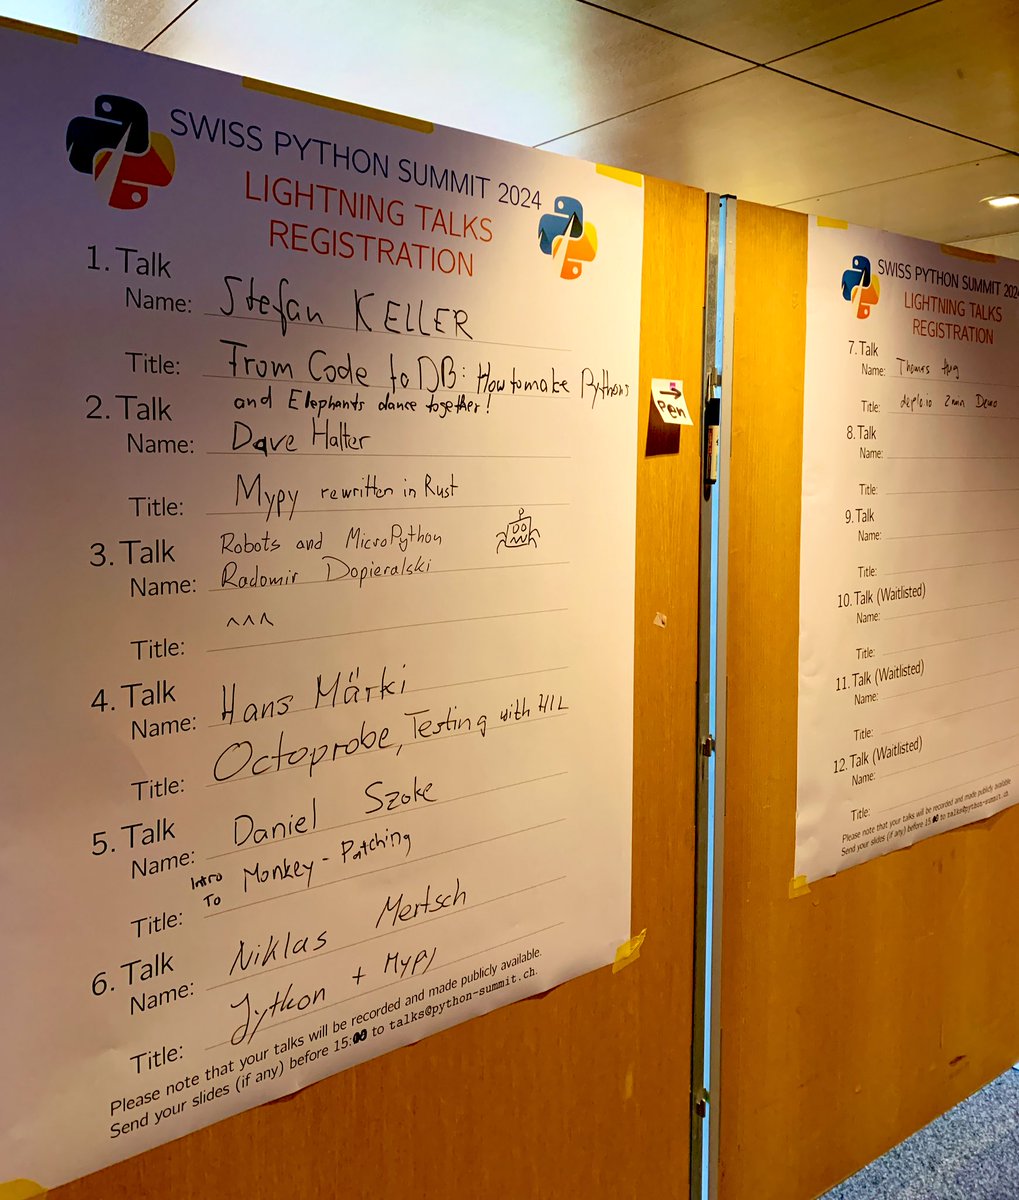 SWISS PYTHON SUMMIT 2024
LIGHTNING TALKS
REGISTRATION
1. Talk
Name: Stefan KELLER
Title: From Code to DB: How to make Pythons
and Elephants dance together!
2. Talk
Name: Dave Halter
Title: Mypy rewritten in Rust
3. Talk Robots and MicroPython
Name: Radomir Dopieralski
^^^
Title:
4. Talk
Name: Hans Märki
Title: Octoprobe, Testing with HIL
5. Talk
Name: Daniel Szoke
Title: Intro To Monkey-Patching
6. Talk
Name: Niklas Mertsch
Title: Jython + Mypy
Please note that your talks will be recorded and made publicly available.
Send your slides (if any) before 15: to talks@python-summit.ch.
→
Pen
SWISS PYTHON SUMMIT 2024
LIGHTNING TALKS
REGISTRATION
7. Talk
Name: Thomas Hug
Title: deploio 2min Demo
8. Talk
Name:
Title:
9. Talk
Name:
Title:
10. Talk (Waitlisted)
Name:
Title:
11. Talk (Waitlisted)
Name:
Title:
12. Talk (Waitlisted)
Name:
Title:
Please note that your talks will be recorded and made publicly available
Send your slides (if any) before 15: to talks@python-summit.ch.